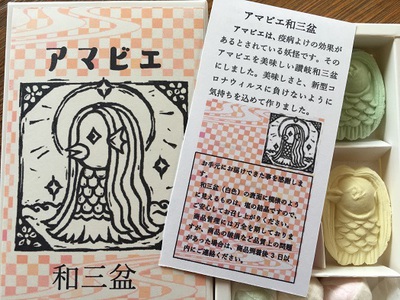 アマビエ
和三盆
アマビエ和三盆
アマビエは、疫病よけの効果が
あるとされている妖怪です。その
アマビエを美味しい讃岐和三盆
にしました。美味しさと、新型コ
ロナウィルスに負けないように
気持ちを込めて作りました。
お手元にお届けできた事を感謝しま
す。
和三盆（白色）の表面に模様のよう
に見えるものは、塩の結晶ですので、
ご安心してお召し上がりください。
商品管理には万全を期しております
が、商品の破損など品質上の問題
があった場合は、商品到着後３日以
内にご連絡ください。